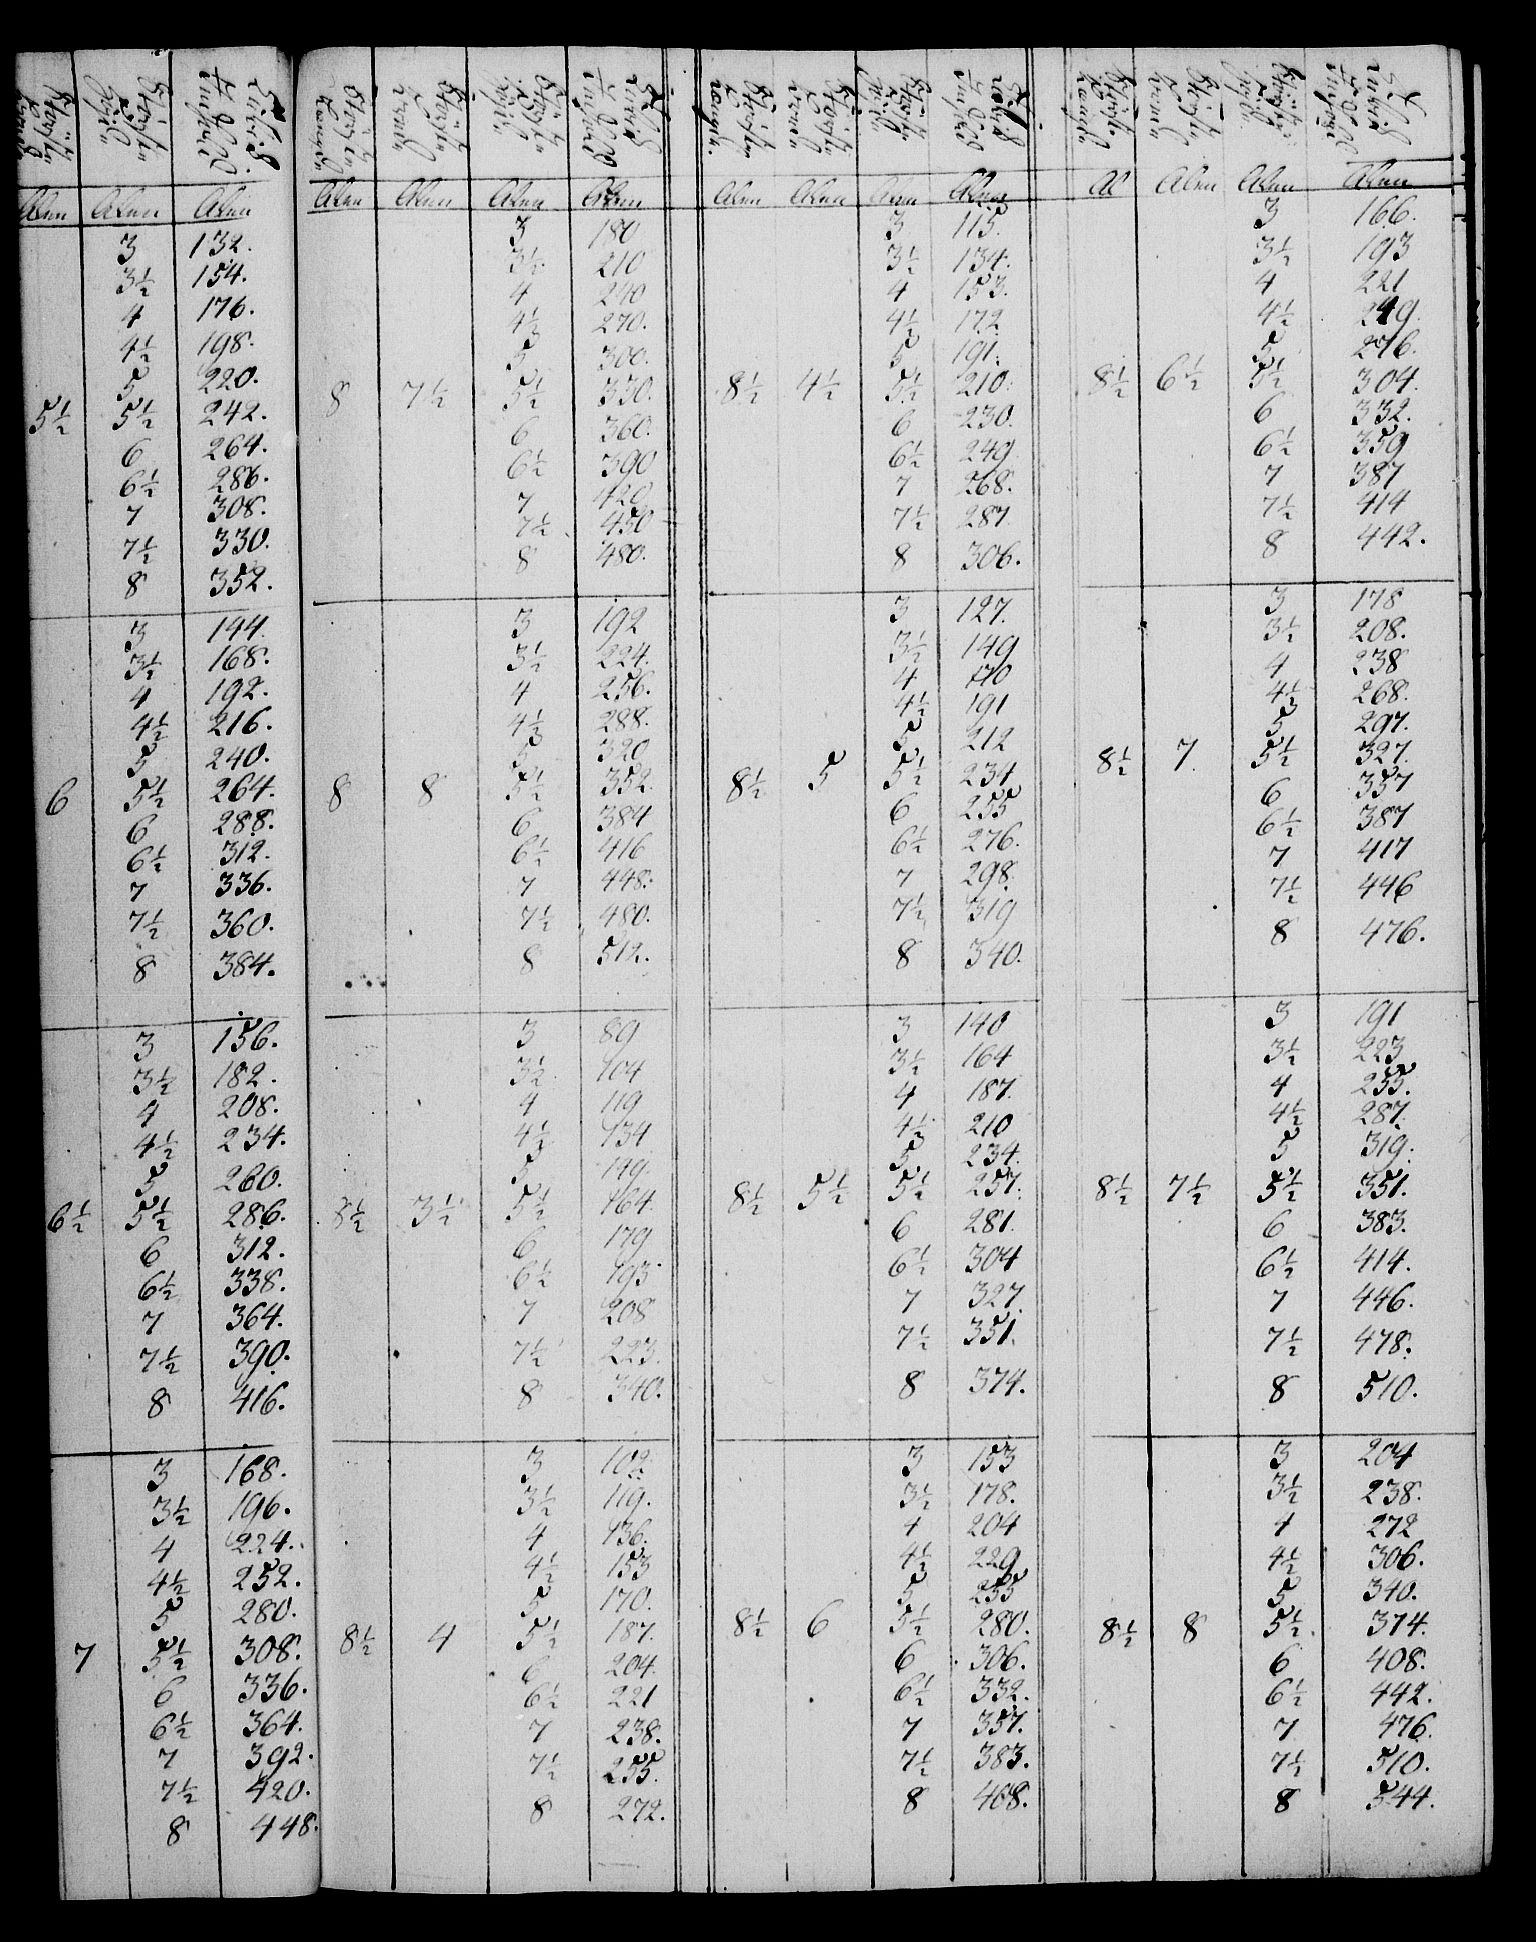 Alen Alen Alen
5½
3 132.
3½ 154.
4 176.
4½ 198.
5 220.
5½ 242.
6 264.
6½ 286.
7 308.
7½ 330.
8 352.
6
3 144.
3½ 168.
4 192.
4½ 216.
5 240.
5½ 264.
6 288.
6½ 312.
7 336.
7½ 360.
8 384.
6½
3 156.
3½ 182.
4 208.
4½ 234.
5 260.
5½ 286.
6 312.
6½ 338.
7 364.
7½ 390.
8 416.
7
3 168.
3½ 196.
4 224.
4½ 252.
5 280.
5½ 308.
6 336.
6½ 364.
7 392.
7½ 420.
8 448.
Alen Alen Alen Alen
8 7½
3 180
3½ 210
4 240
4½ 270.
5 300.
5½ 330.
6 360.
6½ 390
7 420
7½ 450
8 480.
8 8
3 192
3½ 224.
4 256.
4½ 288.
5 320
5½ 352.
6 384
6½ 416
7 448.
7½ 480.
8 512.
8½ 3½
3 89
3½ 104
4 119
4½ 134
5 149.
5½ 164.
6 179
6½ 193
7 208
7½ 223.
8 340.
8½ 4
3 102
3½ 119.
4 136.
4½ 153
5 170.
5½ 187.
6 204.
6½ 221
7 238.
7½ 255.
8 272.
Alen Alen Alen Alen
8½ 4½
3 115.
3½ 134.
4 153.
4½ 172
5 191.
5½ 210.
6 230.
6½ 249
7 268.
7½ 287
8 306.
8½ 5
3 127.
3½ 149
4 170
4½ 191
5 212
5½ 234
6 255
6½ 276.
7 298.
7½ 319
8 340.
8½ 5½
3 140
3½ 164
4 187.
4½ 210
5 234.
5½ 257.
6 281.
6½ 304
7 327.
7½ 351.
8 374.
8½ 6
3 153
3½ 178.
4 204
4½ 229
5 255
5½ 280.
6 306.
6½ 332.
7 357.
7½ 383.
8 408.
Al Alen Alen Alen
8½ 6½
3 166.
3½ 193
4 221
4½ 249.
5 276.
5½ 304.
6 332.
6½ 359
7 387
7½ 414
8 442.
8½ 7.
3 178
3½ 208.
4 238
4½ 268.
5 297.
5½ 327.
6 357
6½ 387
7 417
7½ 446
8 476.
8½ 7½
3 191
3½ 223
4 255.
4½ 287.
5 319.
5½ 351.
6 383.
6½ 414.
7 446.
7½ 478.
8 510.
8½ 8
3 204
3½ 238.
4 272
4½ 306.
5 340.
5½ 374.
6 408.
6½ 442.
7 476.
7½ 510.
8 544.